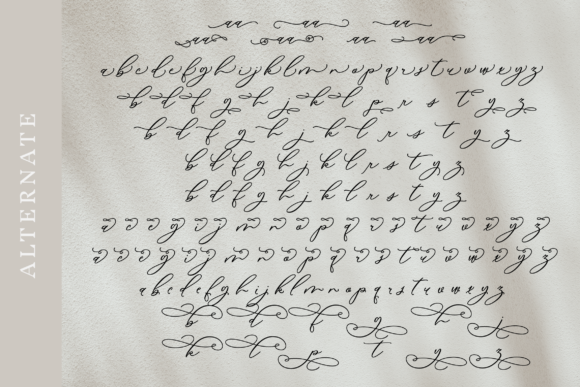 ALTERNATE
aa aa aa
aa aa aa aa
a b c d e f g h i j k l m n o p q r s t u v w x y z
b d f g h j k l p r s t y z
b d f g h j k l r s t y z
b d f g h j k l r s t y z
b d f g h j k l r s t y z
a c e g i j m n o p q r s t u v w x y z
a c e g i j m n o p q r s t u v w x y z
a b c d e f g h i j k l m n o p q r s t u v w x y z
b d f g h j
k l p t y z